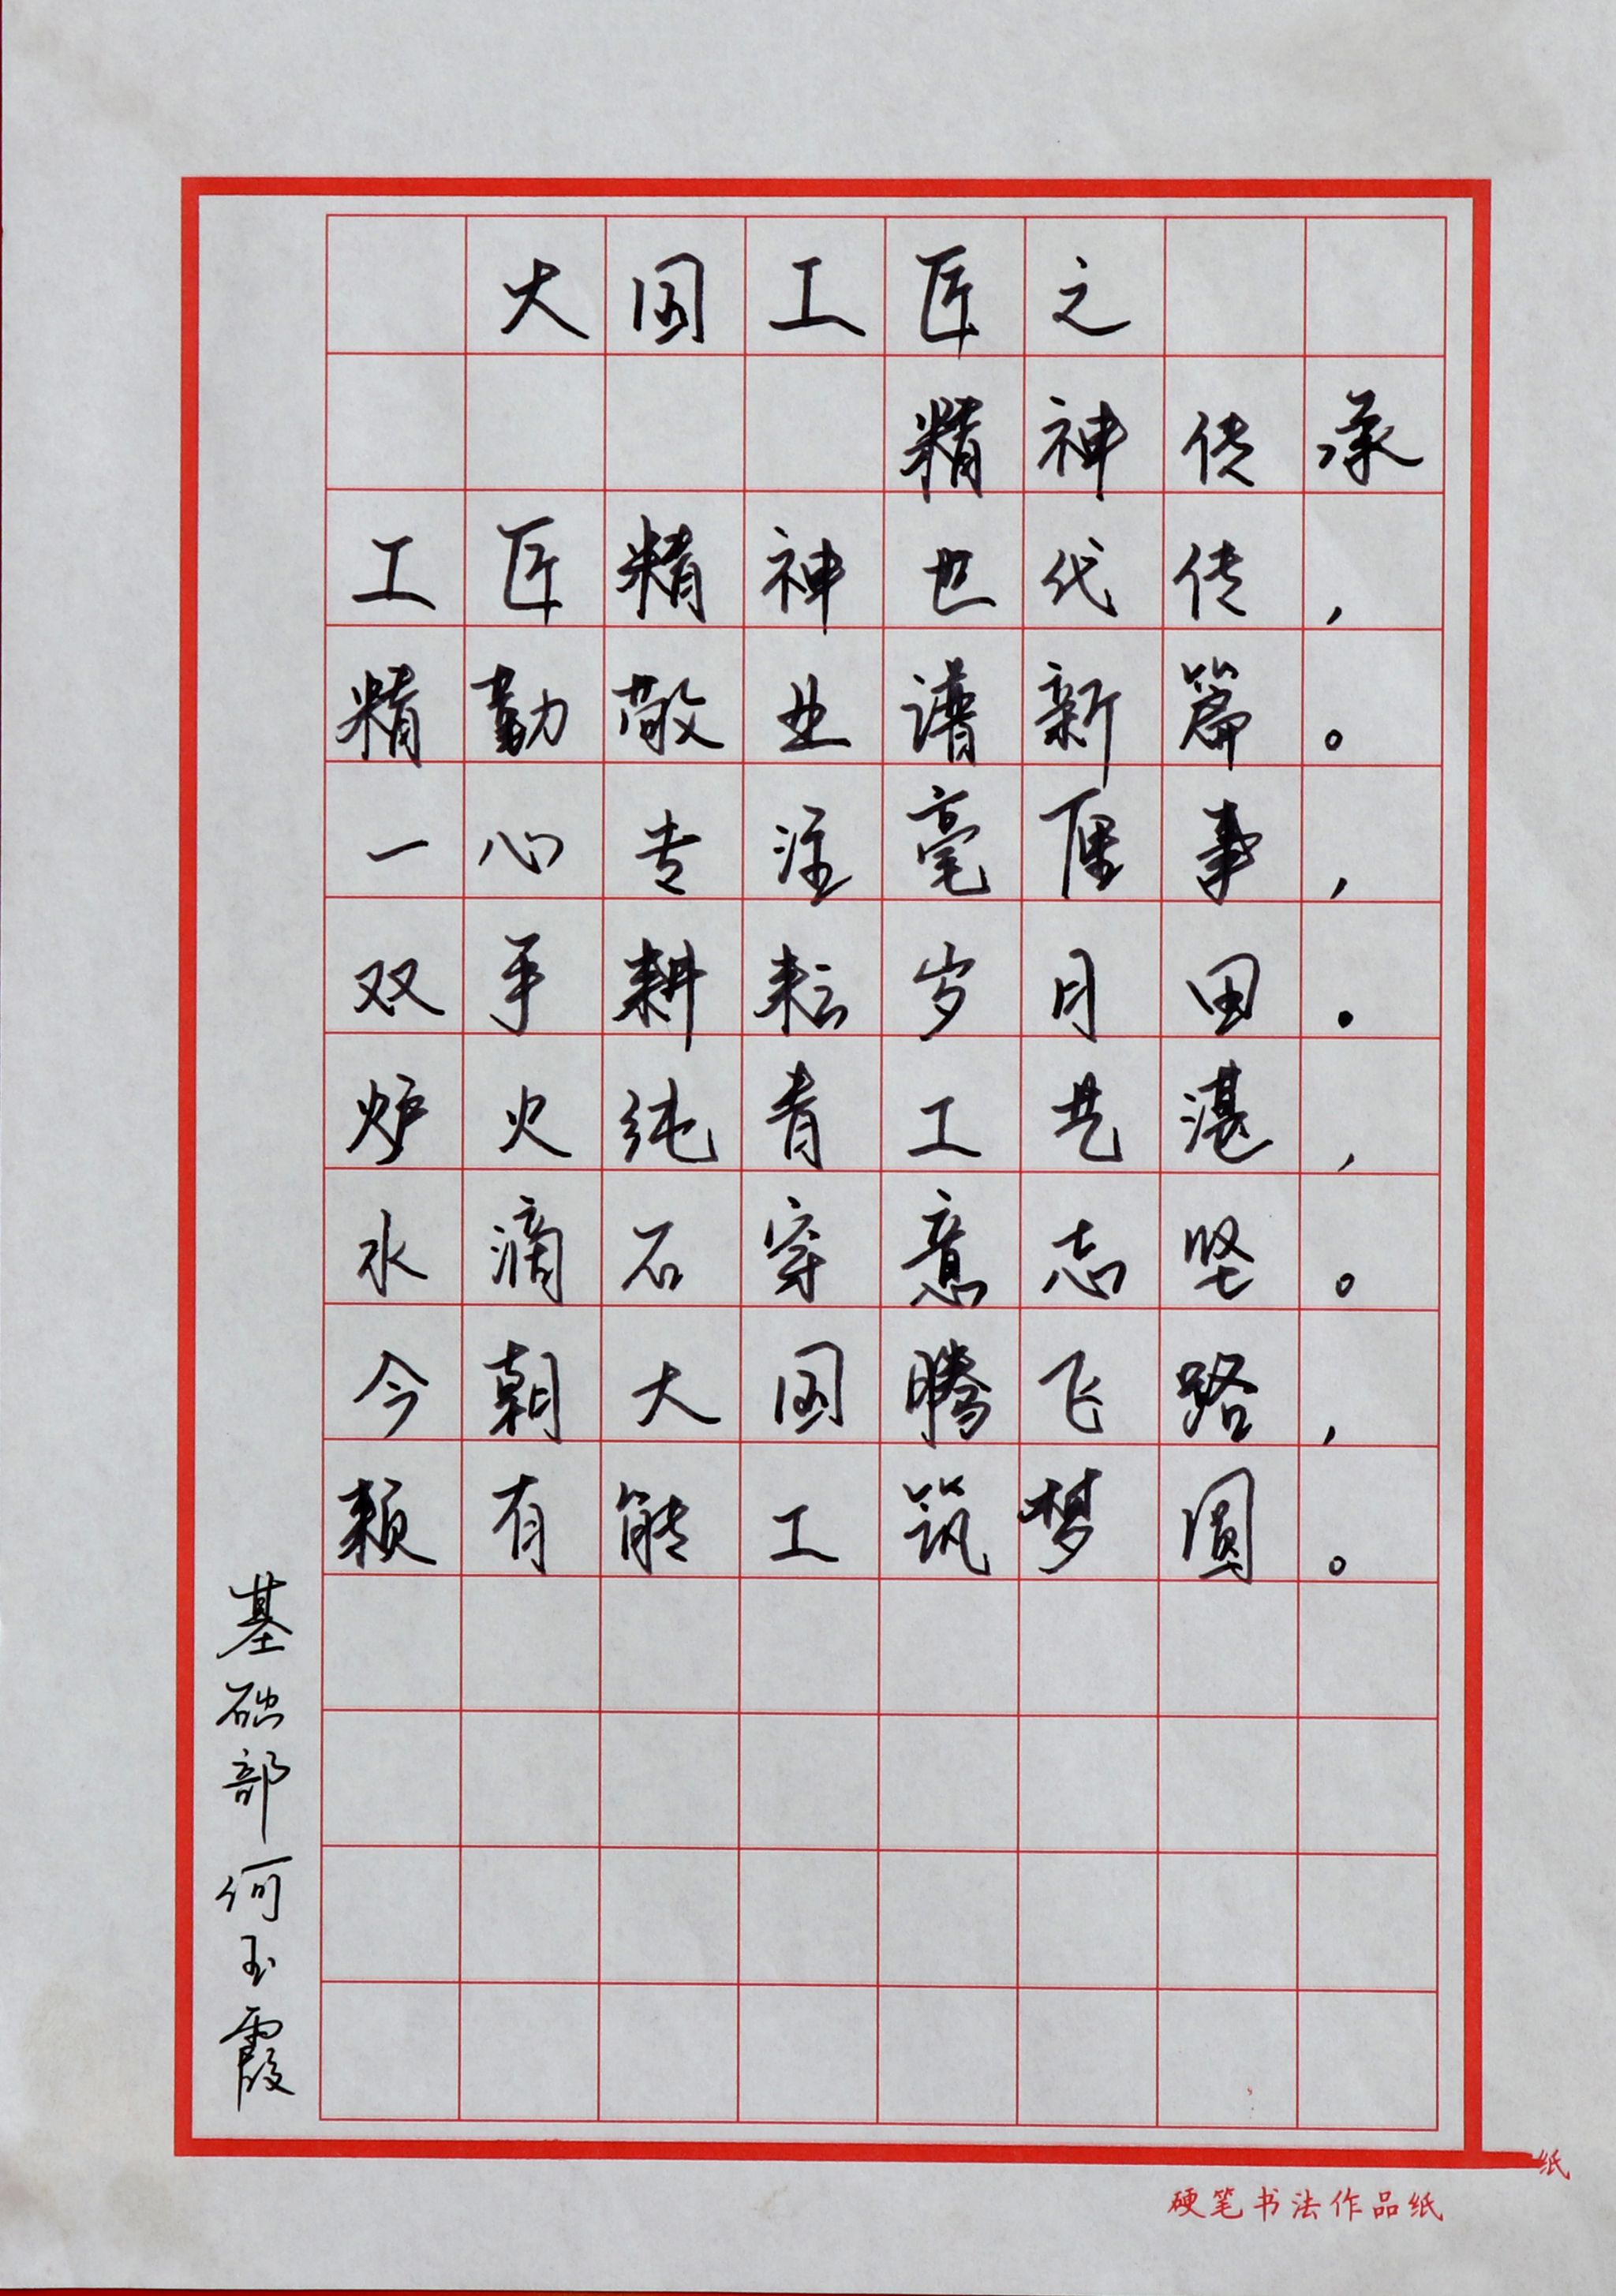 大国工匠之
精神传承
工匠精神世代传，
精勤敬业谱新篇。
一心专注毫厘事，
双手耕耘岁月田.
炉火纯青工艺湛，
水滴石穿意志坚。
今朝大国腾飞路，
赖有能工筑梦圆。
基础部何玉霞
纸
硬笔书法作品纸